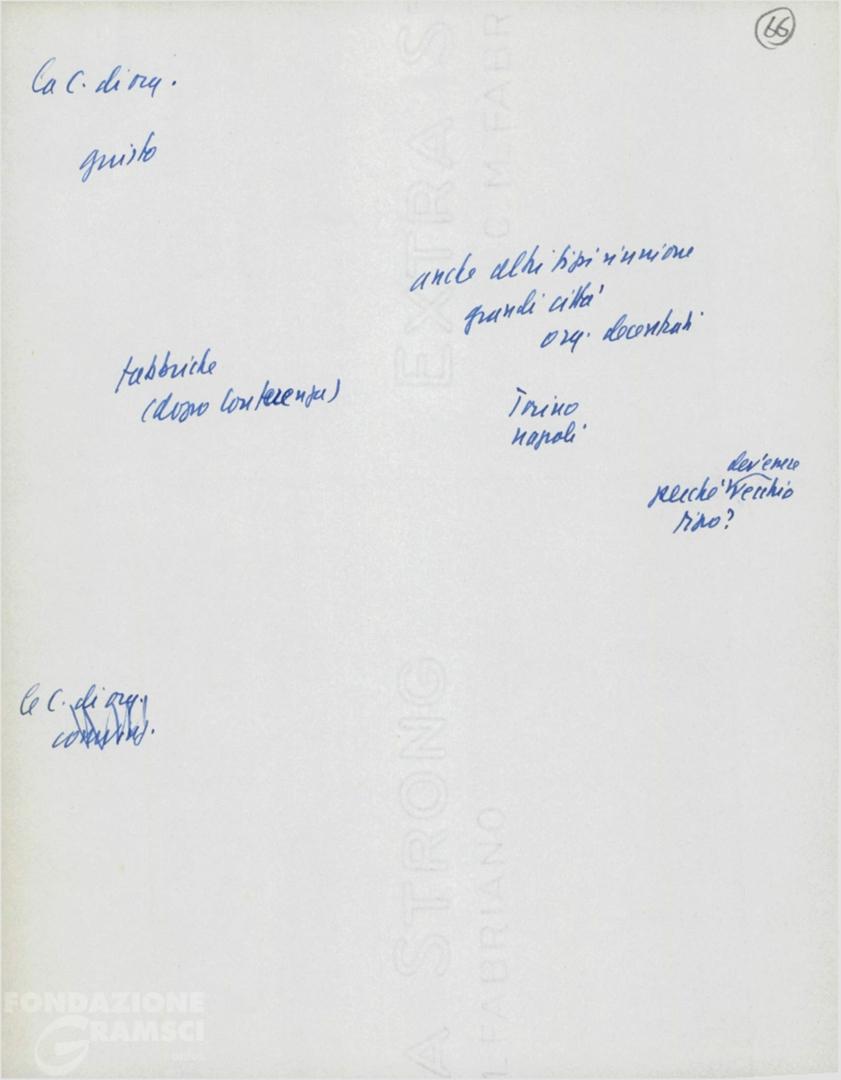 66
la C. di org.
giusto
anche altri tipi riunione
grandi città
org. decentrati
fabbriche
(dopo Conferenza)
Torino
Napoli
dev'essere
perché vecchio
tipo?
le C. di org.
EXTRA S
C.M.FABR
A STRONG
FABRIANO
FONDAZIONE
GRAMSCI
onlus